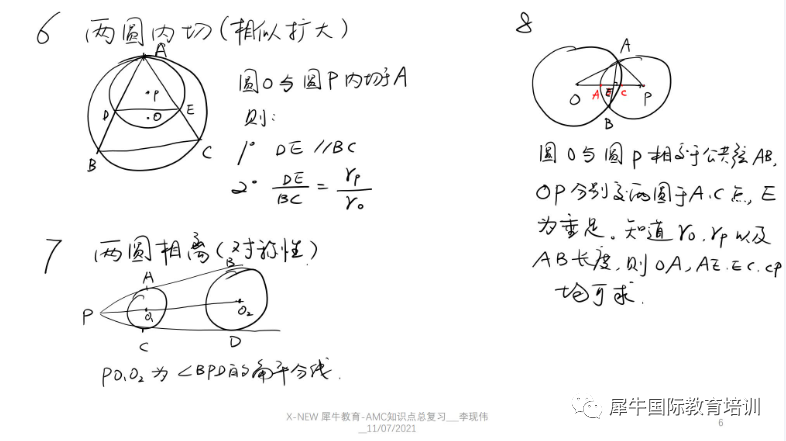 6 两圆内切(相似扩大)
A
P
D
O
E
B
C
圆O与圆P内切于A
则:
1° DE∥BC
2° DE/BC = rp/ro
7 两圆相离(对称性)
B
A
P
O₁
O₂
C
D
PO₁O₂为∠BPD的角平分线.
8
A
O
A
E
C
P
B
圆O与圆P相交于公共弦AB,
OP分别交两圆于A.C点,E
为垂足。知道ro.rp以及
AB长度,则OA,AE.EC.CP
均可求.
X-NEW 犀牛教育-AMC知识点总复习__李现伟
__11/07/2021
6
犀牛国际教育培训